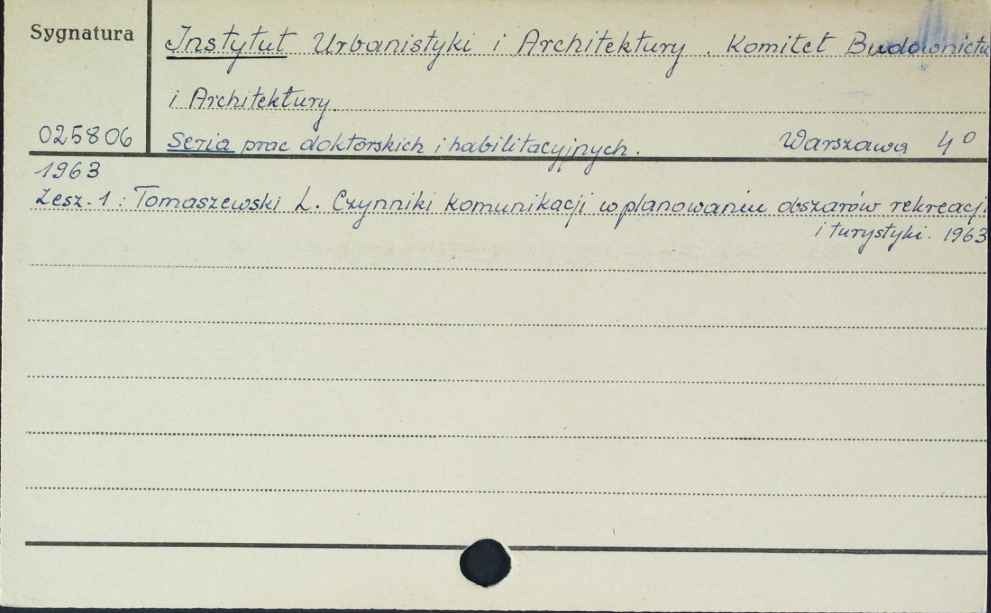 Sygnatura
Instytut Urbanistyki i Architektury. Komitet Budownictwa
i Architektury.
025806
Seria prac doktorskich i habilitacyjnych. Warszawa 4°
1963
Zesz. 1: Tomaszewski L. Czynniki komunikacji w planowaniu obszarów rekreacji
i turystyki. 1963